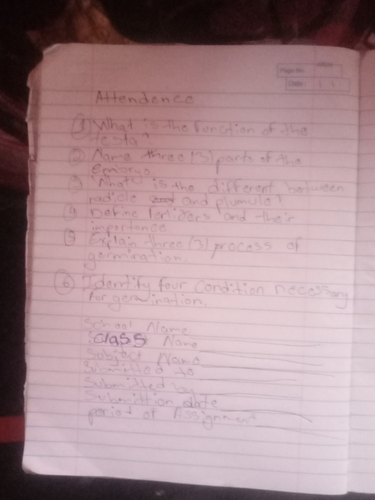 Page No.
Date
Attendence
① What is the function of the
testa?
② Name three (3) parts of the
embroyo
③ What is the different between
radicle and plumule?
④ Define fertilizers and their
importance
⑤ Explain three (3) process of
germination.
⑥ Identify four condition necessary
for germination.
School Name
class Name
Subject Name
Submitted to
Submitted by
Submittion date
period of Assignment